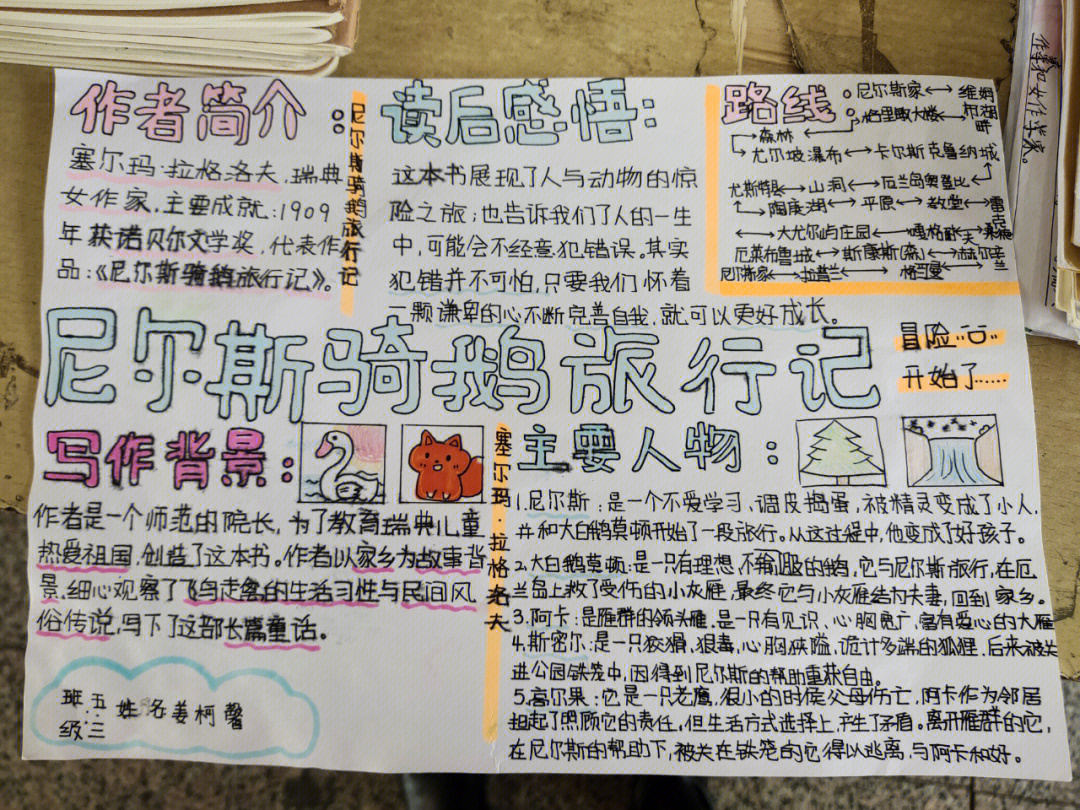 作者简介：
塞尔玛·拉格洛夫，瑞典
女作家，主要成就：1909
年获诺贝尔文学奖，代表作
品：《尼尔斯骑鹅旅行记》。
尼尔斯骑鹅旅行记
读后感悟：
这本书展现了人与动物的惊
险之旅；也告诉我们了人的一生
中，可能会不经意犯错误。其实
犯错并不可怕，只要我们怀着
一颗谦卑的心不断完善自我，就可以更好成长。
路线：
尼尔斯家↔维姆
布湖畔
格里敏大楼
森林
尤尔坡瀑布↔卡尔斯克鲁纳城
山河↔厄兰岛奥登比
陶庚湖↔平原↔教堂
大尤尔屿庄园
厄莱布鲁城↔斯康斯(森)
尼尔斯家↔拉普兰
尼尔斯骑鹅旅行记
冒险
开始了……
写作背景：
作者是一个师范的院长，为了教育瑞典儿童
热爱祖国，创造了这本书。作者以家乡为故事背
景，细心观察了飞鸟走禽的生活习性与民间风
俗传说，写下了这部长篇童话。
塞尔玛·拉格名夫
主要人物：
1.尼尔斯：是一个不爱学习，调皮捣蛋，被精灵变成了小人，
并和大白鹅莫顿开始了一段旅行。从这过程中，他变成了好孩子。
2.大白鹅莫顿：是一只有理想，不输服的鹅，它与尼尔斯旅行，在厄
兰岛上救了受伤的小灰雁，最终它与小灰雁结为夫妻，回到家乡。
3.阿卡：是雁群的领头雁，是一只有见识，心胸宽广，富有爱心的大雁
4.斯密尔：是一只狡猾，狠毒，心胸狭隘，诡计多端的狐狸，后来被关
进公园铁笼中，因得到尼尔斯的帮助重获自由。
5.高尔果：它是一只老鹰，很小的时候父母伤亡，阿卡作为邻居
担起了照顾它的责任，但生活方式选择上，产生了矛盾。离开雁群的它，
在尼尔斯的帮助下，被关在铁笼的它得以逃离，与阿卡和好。
班级 五·三 姓名姜柯馨